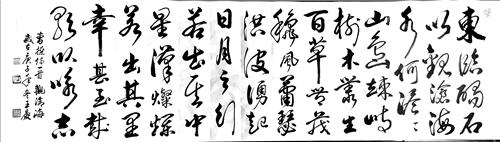 東臨碣石
以觀滄海
水何澹々
山島竦峙
樹木叢生
百草豐茂
秋風蕭瑟
洪波湧起
日月之行
若出其中
星漢燦爛
若出其里
幸甚至哉
歌以詠志
曹操詩一首觀滄海